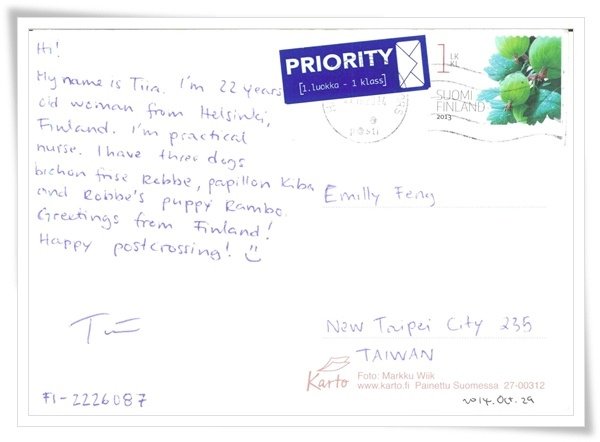 Hi!
My name is Tiia. I'm 22 years
old woman from Helsinki,
Finland. I'm practical
nurse. I have three dogs
bichon frise Robbe, papillon Kiba
and Robbe's puppy Rambo.
Greetings from Finland!
Happy postcrossing!
FI-2226087
PRIORITY
[1.luokka - 1 klass]
1 LK
KL
SUOMI
FINLAND
2013
posti
Emilly Feng
New Taipei City 235
TAIWAN
Karto
Foto: Markku Wiik
www.karto.fi Painettu Suomessa 27-00312
2014. Oct. 29